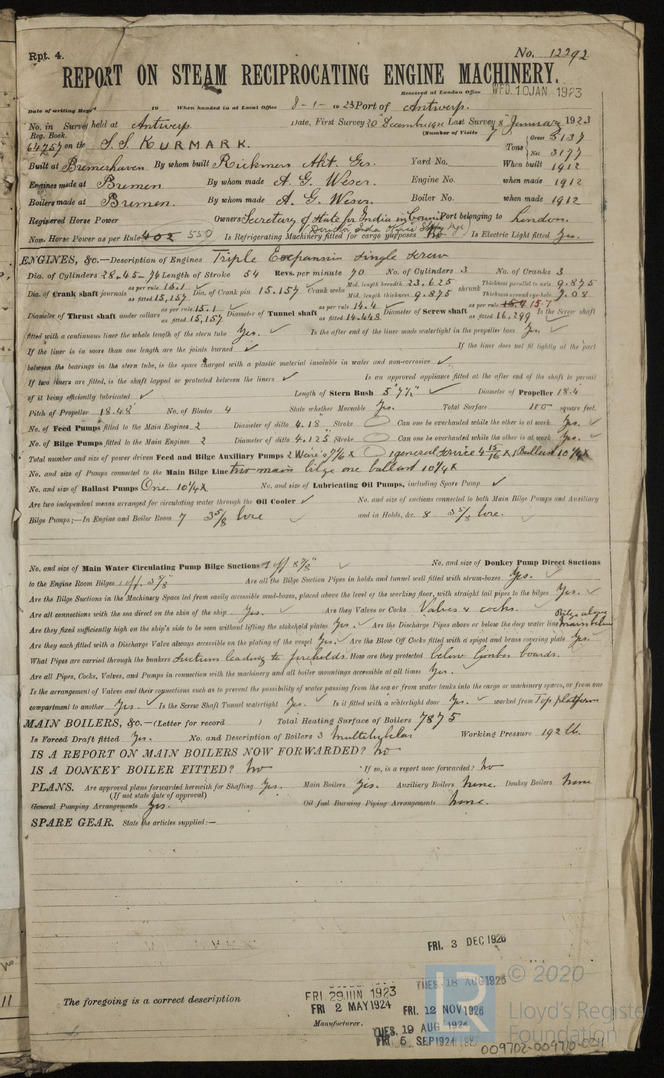 Rpt. 4.
No. 12292
REPORT ON STEAM RECIPROCATING ENGINE MACHINERY.
Received at London Office WED. 10 JAN 1923
Date of writing Report 19 When handed in at Local Office 8-1- 1923 Port of Antwerp.
No. in Survey held at Antwerp Date, First Survey 20 December 1922 Last Survey 8 January 1923
Reg. Book. (Number of Visits 7
64757 on the S.S. KURMARK. Tons Gross 5137 Net 3177
Built at Bremerhaven By whom built Rickmers Akt. Ges. Yard No. When built 1912
Engines made at Bremen By whom made A. G. Weser. Engine No. when made 1912
Boilers made at Bremen. By whom made A. G. Weser. Boiler No. when made 1912
Registered Horse Power Owners Secretary of State for India in Council Port belonging to London.
Nom. Horse Power as per Rule 402 550 Is Refrigerating Machinery fitted for cargo purposes No Is Electric Light fitted Yes.
ENGINES, &c.—Description of Engines Triple Expansion single screw
Dia. of Cylinders 28.45-74 Length of Stroke 54 Revs. per minute 70 No. of Cylinders 3 No. of Cranks 3
Dia. of Crank shaft journals as per rule 15.1 as fitted 15.157 Dia. of Crank pin 15.157 Crank webs Mid. length breadth 23.625 Mid. length thickness 9.875 shrunk Thickness parallel to axis 9.875 Thickness around eye-hole 7.08
Diameter of Thrust shaft under collars as per rule 15.1 as fitted 15.157 Diameter of Tunnel shaft as per rule 14.4 as fitted 14.448 Diameter of Screw shaft as per rule 15.7 as fitted 16.299 Is the Screw shaft
fitted with a continuous liner the whole length of the stern tube Yes. Is the after end of the liner made watertight in the propeller boss Yes.
If the liner is in more than one length are the joints burned ✓ If the liner does not fit tightly at the part
between the bearings in the stern tube, is the space charged with a plastic material insoluble in water and non-corrosive ✓
If two liners are fitted, is the shaft lapped or protected between the liners ✓ Is an approved appliance fitted at the after end of the shaft to permit
of it being efficiently lubricated ✓ Length of Stern Bush 5' 7¾" ✓ Diameter of Propeller 18.4
Pitch of Propeller 18.48 No. of Blades 4 State whether Moveable Yes. Total Surface 100 square feet.
No. of Feed Pumps fitted to the Main Engines 2 Diameter of ditto 4.18 Stroke Can one be overhauled while the other is at work Yes. ✓
No. of Bilge Pumps fitted to the Main Engines 2 Diameter of ditto 4.125 Stroke Can one be overhauled while the other is at work Yes. ✓
Total number and size of power driven Feed and Bilge Auxiliary Pumps 2 Weirs 1 general service 1 Ballast 10¼ x
No. and size of Pumps connected to the Main Bilge Line two main bilge one ballast 10¼ x
No. and size of Ballast Pumps One 10¼ x No. and size of Lubricating Oil Pumps, including Spare Pump ✓
Are two independent means arranged for circulating water through the Oil Cooler ✓ No. and size of suctions connected to both Main Bilge Pumps and Auxiliary
Bilge Pumps;—In Engine and Boiler Room 7 3⅝ bore ✓ and in Holds, &c. 8 3⅝ bore. ✓
No. and size of Main Water Circulating Pump Bilge Suctions 1 off 8⅞" ✓ No. and size of Donkey Pump Direct Suctions
to the Engine Room Bilges 1 off 3⅞" Are all the Bilge Suction Pipes in holds and tunnel well fitted with strum-boxes Yes. ✓
Are the Bilge Suctions in the Machinery Space led from easily accessible mud-boxes, placed above the level of the working floor, with straight tail pipes to the bilges Yes. ✓
Are all connections with the sea direct on the skin of the ship Yes. ✓ Are they Valves or Cocks Valves & cocks.
Are they fixed sufficiently high on the ship's side to be seen without lifting the stokehold plates Yes. ✓ Are the Discharge Pipes above or below the deep water line Bilge above main below
Are they each fitted with a Discharge Valve always accessible on the plating of the vessel Yes. ✓ Are the Blow Off Cocks fitted with a spigot and brass covering plate Yes. ✓
What Pipes are carried through the bunkers Suctions leading to foreholds. How are they protected below limber boards.
Are all Pipes, Cocks, Valves, and Pumps in connection with the machinery and all boiler mountings accessible at all times Yes.
Is the arrangement of Valves and their connections such as to prevent the possibility of water passing from the sea or from water tanks into the cargo or machinery spaces, or from one
compartment to another Yes. ✓ Is the Screw Shaft Tunnel watertight Yes. ✓ Is it fitted with a watertight door Yes. ✓ worked from Top platform
MAIN BOILERS, &c.—(Letter for record ) Total Heating Surface of Boilers 7875
Is Forced Draft fitted Yes. No. and Description of Boilers 3 multitubular Working Pressure 192 lb.
IS A REPORT ON MAIN BOILERS NOW FORWARDED? No
IS A DONKEY BOILER FITTED? No If so, is a report now forwarded? No
PLANS. Are approved plans forwarded herewith for Shafting Yes. Main Boilers Yes. Auxiliary Boilers None. Donkey Boilers None
(If not state date of approval)
General Pumping Arrangements Yes. Oil fuel Burning Piping Arrangements None.
SPARE GEAR. State the articles supplied:—
FRI. 3 DEC 1926
TUES. 18 AUG 1925
The foregoing is a correct description
FRI. 29 JUN 1923
FRI. 2 MAY 1924
FRI. 12 NOV 1926
Manufacturer.
TUES. 19 AUG 1924
FRI. 5 SEP 1924
LR
© 2020
Lloyd's Register
Foundation
009702-009710-0211